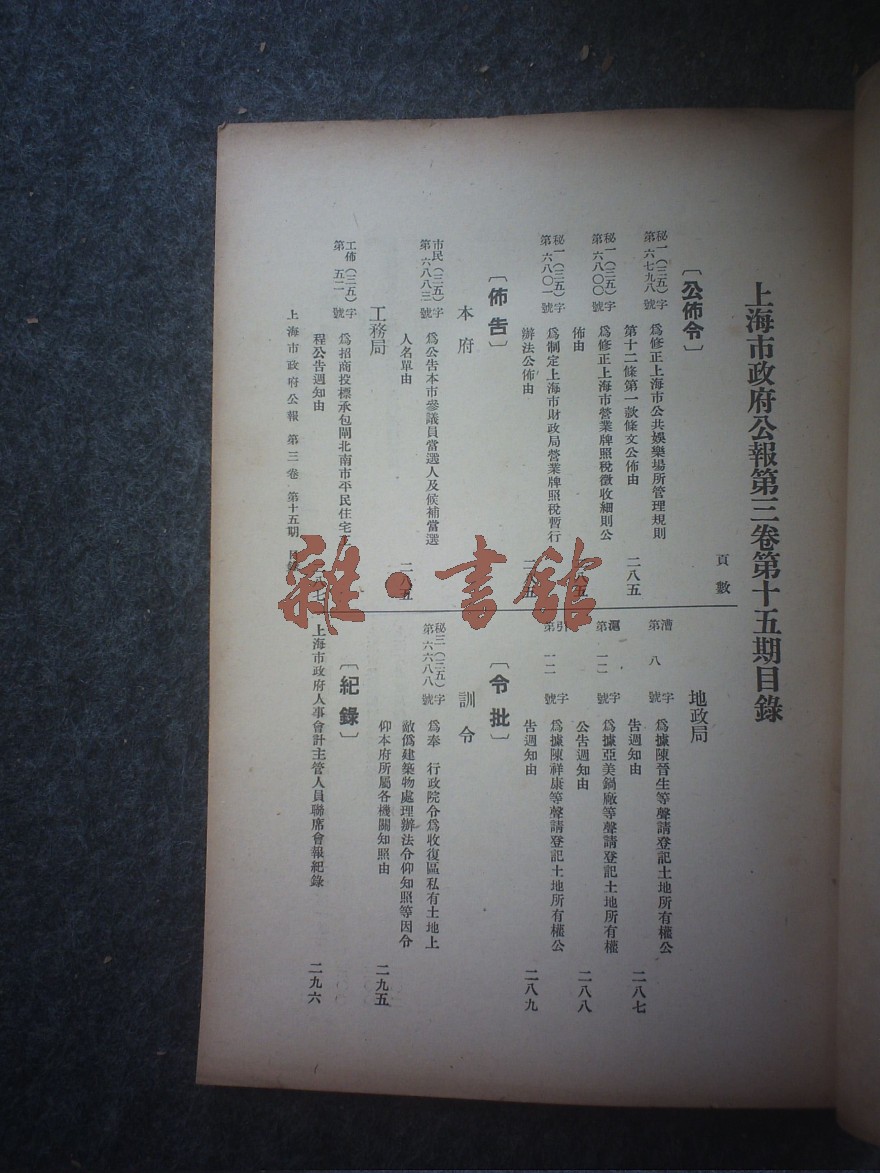 上海市政府公報第三卷第十五期目錄
頁數
〔公佈令〕
秘一(三五)字第六七九八號
爲修正上海市公共娛樂場所管理規則
第十二條第一款條文公佈由
二八五
秘一(三五)字第六八〇〇號
爲修正上海市營業牌照稅徵收細則公
佈由
二八五
秘一(三五)字第六八〇一號
爲制定上海市財政局營業牌照稅暫行
辦法公佈由
二八五
〔佈告〕
本府
市民(三五)字第六八八三號
爲公告本市參議員當選人及候補當選
人名單由
二八五
工務局
工佈(三五)字第五二號
爲招商投標承包閘北南市平民住宅工
程公告週知由
二八七
地政局
漕字第八號
爲據陳晉生等聲請登記土地所有權公
告週知由
二八七
滬字第一二號
爲據亞美鍋廠等聲請登記土地所有權
公告週知由
二八八
引字第一二號
爲據陳祥康等聲請登記土地所有權公
告週知由
二八九
〔令批〕
訓令
秘三(三五)字第六六八八號
爲奉 行政院令爲收復區私有土地上
敵僞建築物處理辦法令仰知照等因令
仰本府所屬各機關知照由
二九五
〔紀錄〕
上海市政府人事會計主管人員聯席會報紀錄
二九六
上海市政府公報 第三卷 第十五期 目錄
雜·書館